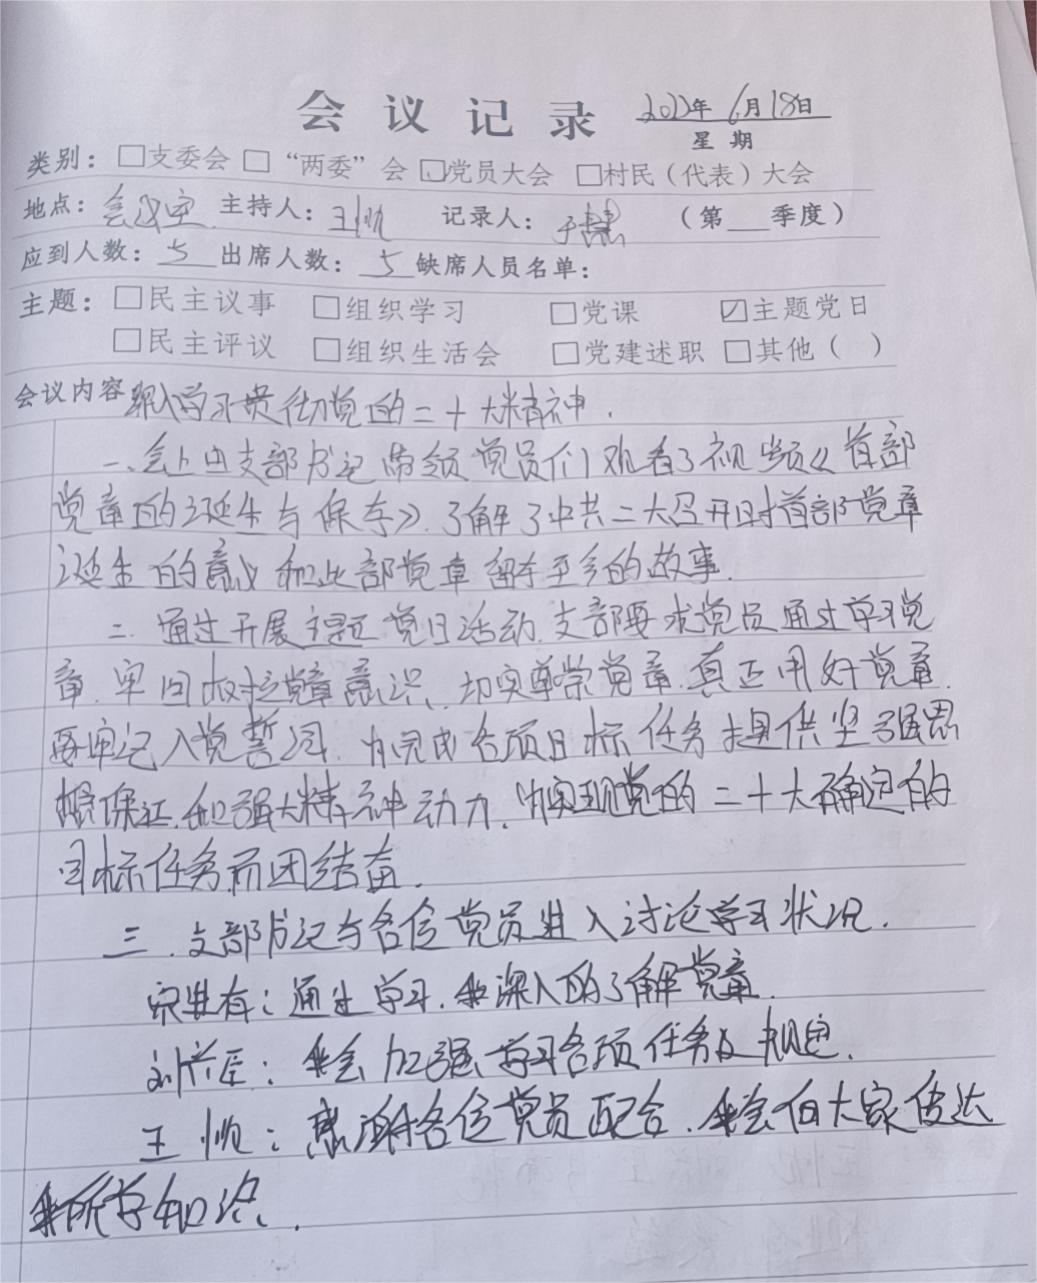 会议记录 2022年6月18日
星期
类别：□支委会 □“两委”会 □党员大会 □村民（代表）大会
地点：会议室 主持人：王帆 记录人：于慧 （第___季度）
应到人数：5 出席人数：5 缺席人员名单：
主题：□民主议事 □组织学习 □党课 ☑主题党日
□民主评议 □组织生活会 □党建述职 □其他（ ）
会议内容 深入学习贯彻党的二十大精神.
一、会上由支部书记带领党员们观看了视频《首部
党章的诞生与保存》.了解了中共二大召开时首部党章
诞生的意义和此部党章留存至今的故事.
二.通过开展主题党日活动.支部要求党员通过学习党
章.牢固树立党章意识、切实尊崇党章.真正用好党章.
要牢记入党誓词.为完成各项目标任务提供坚强思
想保证.和强大精神动力.为实现党的二十大确定的
目标任务而团结奋.
三.支部书记与各位党员进入讨论学习状况.
宋进有：通过学习.我深入的了解党章.
刘兴臣：我会加强学习各项任务及规定.
王帆：感谢各位党员配合.我会向大家传达
我所学知识.